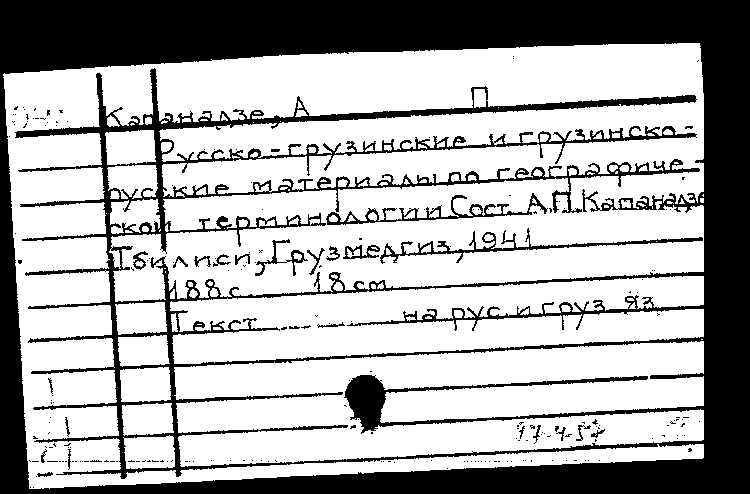 Капанадзе, А П
Русско-грузинские и грузинско-
русские материалы по географиче-
ской терминологии Сост. А.П. Капанадзе
Тбилиси, Грузмедгиз, 1941
188 с. 18 см
Текст на рус. и груз яз.
17.4.57